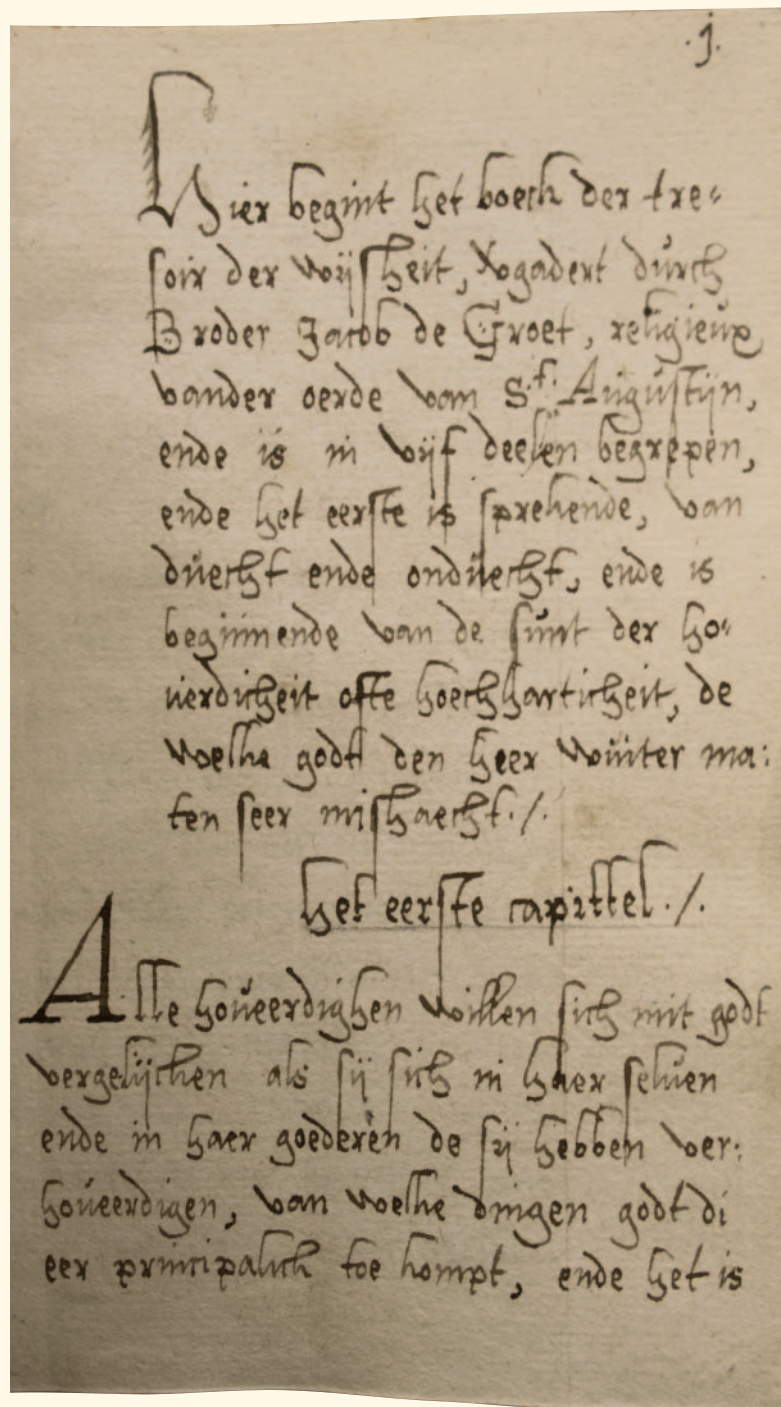 .j.
Hier begint het boeck der tre„
soir der wijsheit, Vergadert dŭrch
Broder Jacob de Groet, religieux
vander oerde van St. Aŭgŭstijn,
ende is in vijf deelen begrepen,
ende het eerste is sprekende, van
dŭecht ende ondŭecht, ende is
beginnende van de sŭnt der ho„
ŭerdicheit ofte hoechharticheit, de
welke godt den heer wŭiter ma:
ten seer mishaecht./.
het eerste capittel./.
Alle hoŭeerdighen willen sich mit godt
vergelijcken als sij sich in haer selŭen
ende in haer goederen de sij hebben ver:
hoŭeerdigen, van welke dingen godt di
eer principalick toe kompt, ende het is